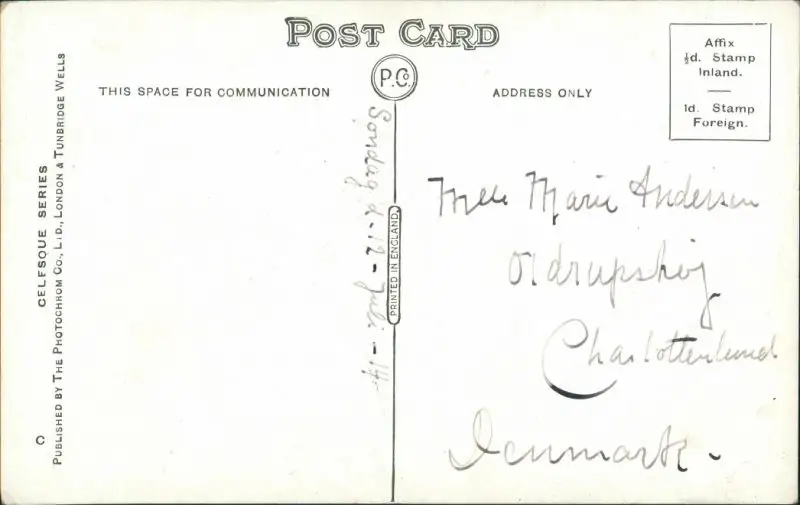 POST CARD
P.Co.
THIS SPACE FOR COMMUNICATION
ADDRESS ONLY
Affix
½d. Stamp
Inland.
1d. Stamp
Foreign.
CELESQUE SERIES
PUBLISHED BY THE PHOTOCHROM CO., LTD., LONDON & TUNBRIDGE WELLS
C
PRINTED IN ENGLAND.
Søndag d. 12 - Juli - 14
Mlle Marie Andersen
Oldrupshøj
Charlottenlund
Denmark.